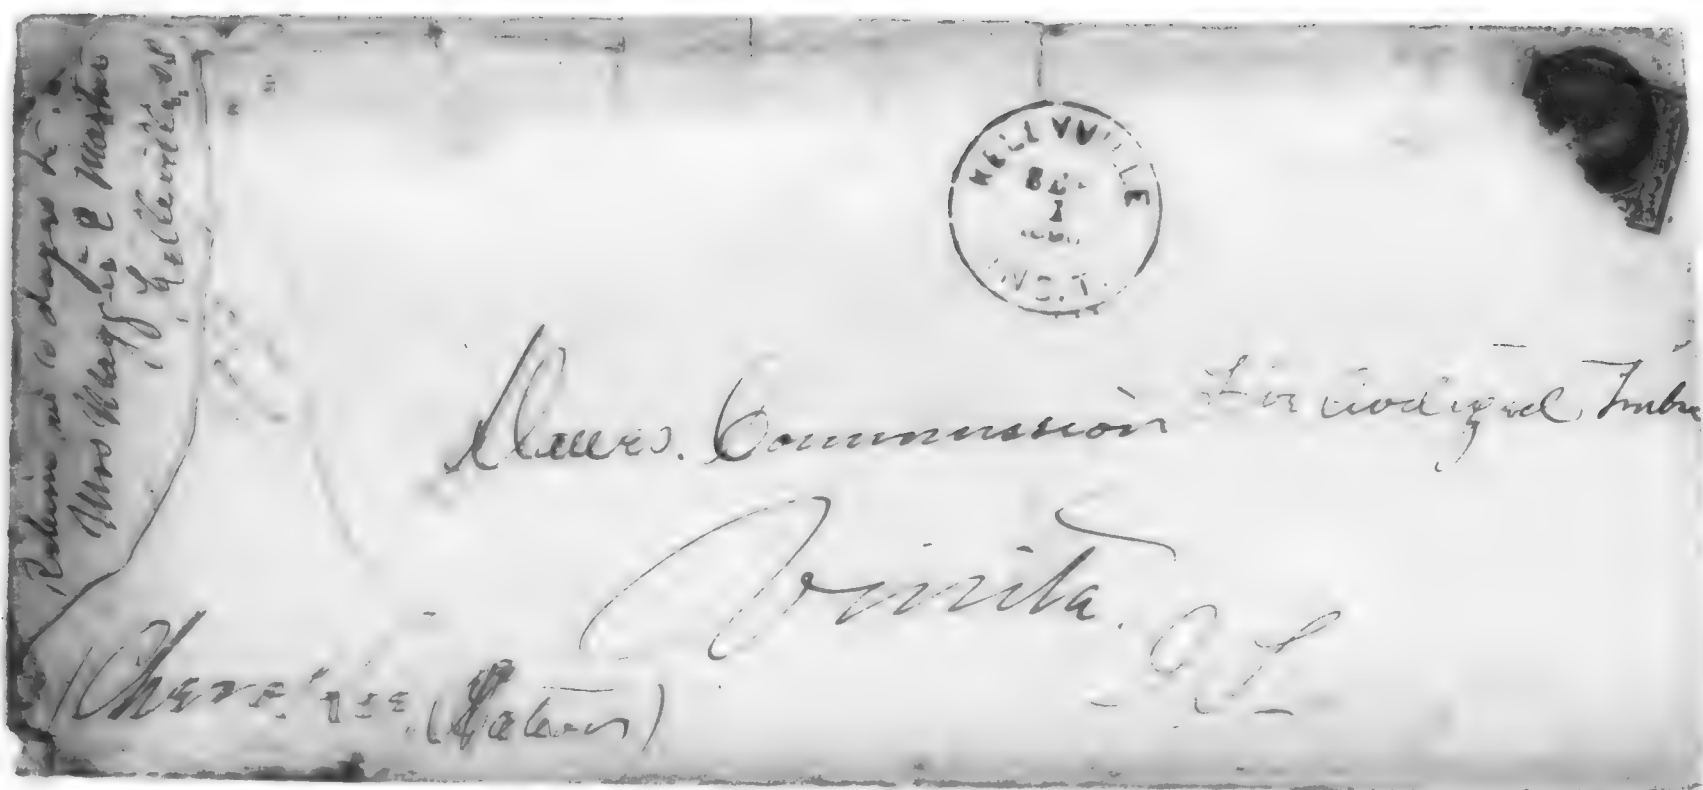 Return in 10 days to
Mrs Maggie E
Kellyville
KELLYVILLE
SEP
1
IND. T.
Dawes. Commission Five civilized Tribe
Vinita. I T
Cherokee (Nation)